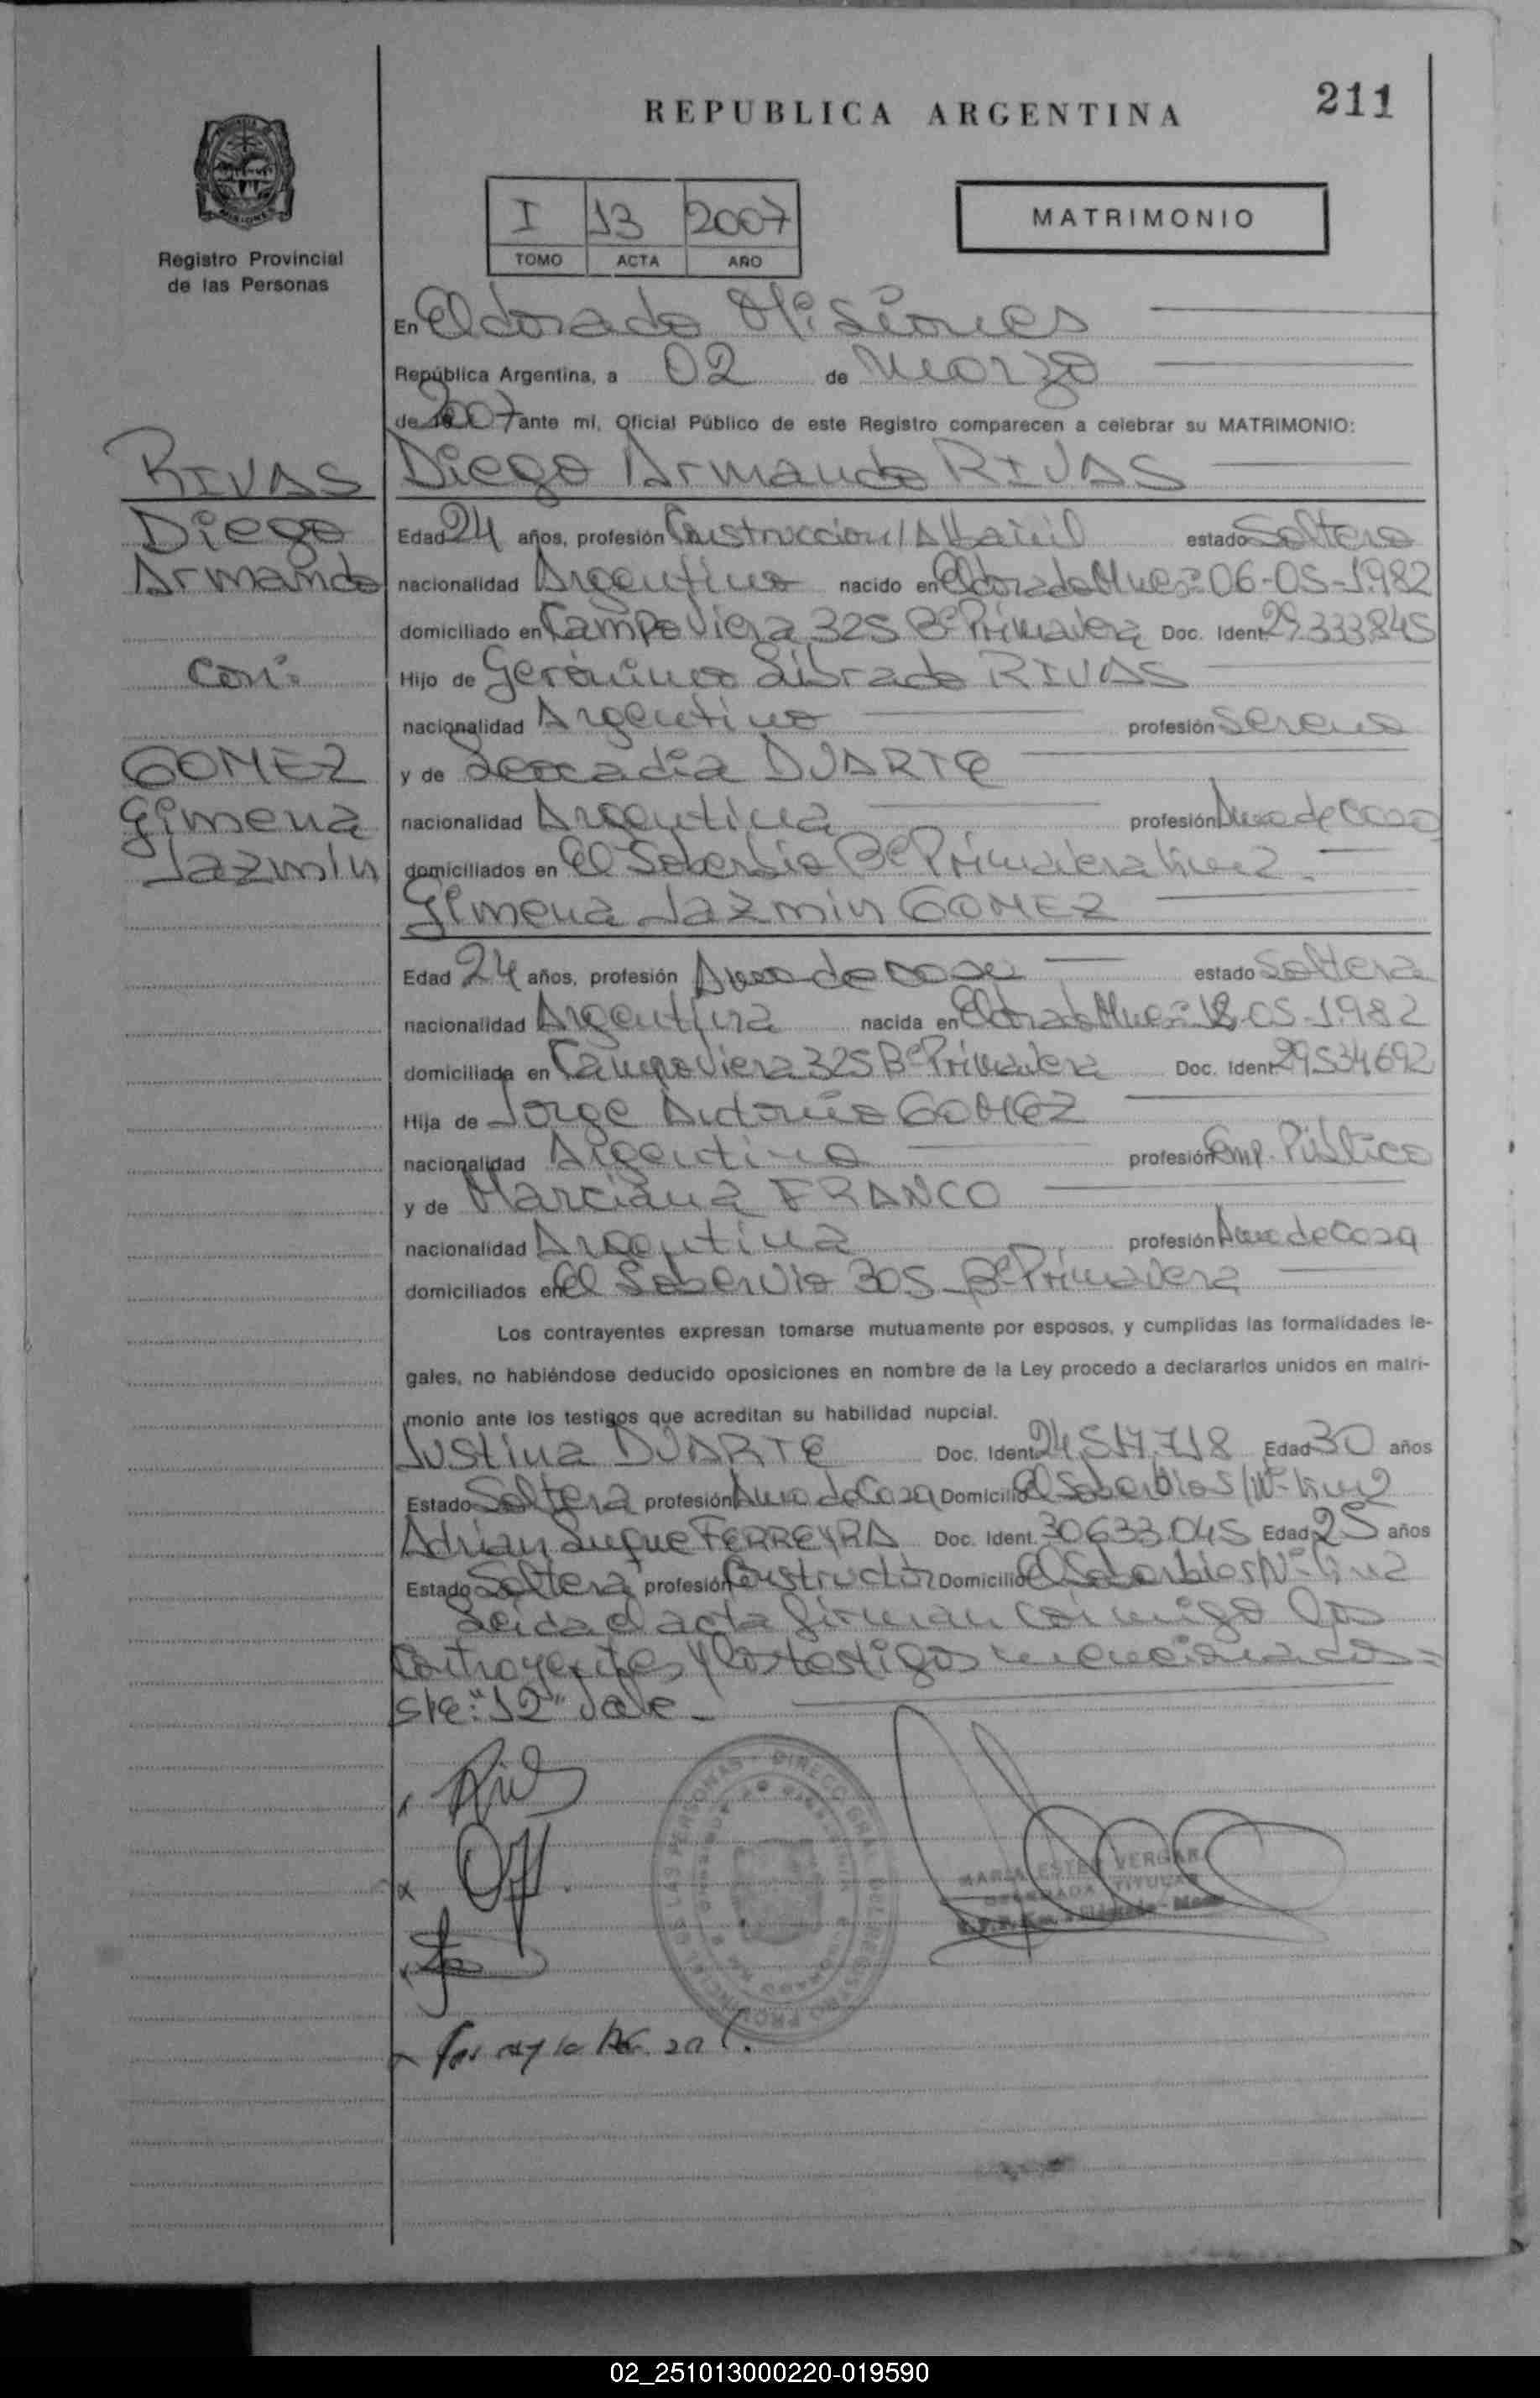 REPUBLICA ARGENTINA
211
I 13 2007
TOMO ACTA AÑO
MATRIMONIO
Registro Provincial
de las Personas
En Eldorado Misiones
República Argentina, a 02 de Marzo
de 2007 ante mí, Oficial Público de este Registro comparecen a celebrar su MATRIMONIO:
RIVAS
Diego
Armando
con:
GOMEZ
Gimena
Jazmín
Diego Armando RIVAS
Edad 24 años, profesión Construccion/Albañil estado Soltero
nacionalidad Argentino nacido en Eldorado Mnes: 06-05-1982
domiciliado en Campo Viera 325 Bº Primavera Doc. Ident. 29.333.845
Hijo de Gerónimo Librado RIVAS
nacionalidad Argentino profesión Sereno
y de Leocadia DUARTE
nacionalidad Argentina profesión Ama de Casa
domiciliados en El Soberbio Bº Primavera
Gimena Jazmín GOMEZ
Edad 24 años, profesión Ama de casa estado Soltera
nacionalidad Argentina nacida en Eldorado Mnes: 12-05-1982
domiciliada en Campo Viera 325 Bº Primavera Doc. Ident. 29534692
Hija de Jorge Antonio GOMEZ
nacionalidad Argentino profesión Emp. Público
y de Marciana FRANCO
nacionalidad Argentina profesión Ama de Casa
domiciliados en El Sobervio 305 Bº Primavera
Los contrayentes expresan tomarse mutuamente por esposos, y cumplidas las formalidades le-
gales, no habiéndose deducido oposiciones en nombre de la Ley procedo a declararlos unidos en matri-
monio ante los testigos que acreditan su habilidad nupcial.
Justina DUARTE Doc. Ident. 24.517.718 Edad 30 años
Estado Soltera profesión Ama de Casa Domicilio El Soberbio S/Nº
Adrian Luque FERREYRA Doc. Ident. 30633.045 Edad 25 años
Estado Soltera profesión Constructor Domicilio El Soberbio s/Nº
Leida el acta firman conmigo los
Contrayentes y los testigos mencionados=
S/R: "12" Vale.
MARIA ESTER VERGARA
TITULAR
02_251013000220-019590